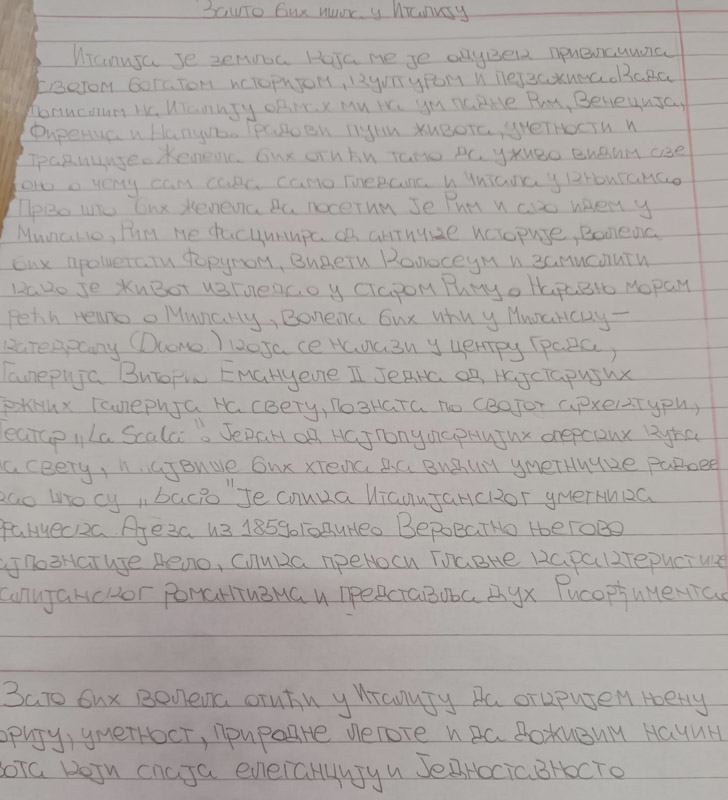 Зашто бих ишла у Италију
Италија је земља која ме је одувек привлачила
својом богатом историјом, културом и пејзажима. Када
помислим на Италију одмах ми на ум падне Рим, Венеција,
Фиренца и Напуљ. Градови пуни живота, уметности и
традиције. Желела бих отићи тамо да уживо видим све
оно о чему сам сада само гледала и читала у књигама.
Прво што бих желела да посетим је Рим и ако идем у
Милано, Рим ме фасцинира од античке историје, Волела
бих прошетати Форумом, видети Колосеум и замислити
како је живот изгледао у старом Риму. Наравно морам
рећи нешто о Милану, Волела бих ићи у Миланску-
катедралу (Duomo) која се налази у центру града,
Галерија Витории Емануеле II једна од најстаријих
тржних галерија на свету, позната по својој архектури,
Театар „La Scala". Један од најпопуларнијих оперских кућа
на свету, и највише бих хтела да видим уметничке радове
као што су „bacio" је слика Италијанског уметника
Франческа Ајеза из 1859. године. Вероватно његово
најпознатије дело, слика преноси главне карактеристике
италијанског романтизма и представља дух Рисорђимента.
Зато бих волела отићи у Италију да откријем њену
орију, уметност, природне лепоте и да доживим начин
вота који спаја елеганцију и једноставност.